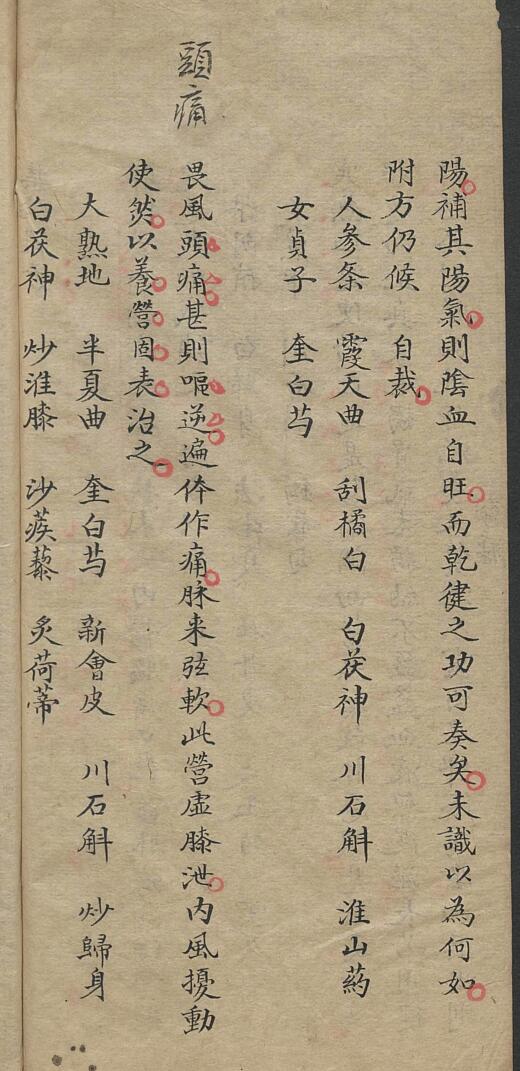 陽補其陽氣則陰血自旺而乾健之功可奏矣未識以為何如
附方仍候 自裁
人參条 霞天曲 刮橘白 白茯神 川石斛 淮山药
女貞子 奎白芍
頭痛
畏風頭痛甚則嘔逆遍体作痛脉来弦軟此營虛膝泄内風擾動
使然以養營固表治之
大熟地 半夏曲 奎白芍 新會皮 川石斛 炒歸身
白茯神 炒淮膝 沙蒺藜 炙荷蒂